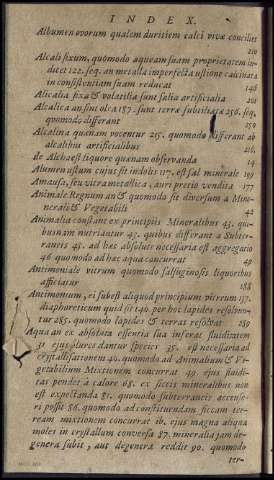 INDEX.
Albumen ovorum qualem duritiem calci vivæ conciliet
210
Alcali fixum, quomodo aqueam suam proprietatem in-
dicet 122. seq. an metalla imperfecta ustione calcinata
in consistentiam suam reducat 146
Alcalia fixa & volatilia sunt salia artificialia 208
Alcalica an sint olea 187. sunt terræ subtilitate 256. seq.
quomodo differant 259
Alcalina quænam vocentur 215. quomodo differant ab
alcalibus artificialibus 216.
de Alchaest liquore quænam observanda 14
Alumen ustum cujus sit indolis 117. est sal minerale 195
Amausa, seu vitra metallica, auri precio vendita 177
Animale Regnum an & quomodo sit diversum a Mine-
nerale & Vegetabili 44
Animalia constant ex principiis Mineralibus 43. qui-
busnam nutriantur 43. quibus differant a Subter-
raneis 45. ad hæc absolute necessaria est aggregatio
46 quomodo ad hæc aqua concurrat 49
Antimoniale vitrum quomodo salsuginosis liquoribus
afficiatur 188
Antimonium, ei subest aliquod principium vitreum 137.
diaphoreticum quid sit 140. per hoc lapides resolvun-
tur 285. quomodo lapides & terras resolvat 289
Aqua an ex absoluta essentia sua inferat fluiditatem
31 ejus plures dantur species 35. est necessaria ad
crystallisationem 40. quomodo ad Animalium & Ve-
getabilium Mixtionem concurrat 49 ejus fluidi-
tas pendet a calore 68. ex siccis mineralibus non
est expectanda 81. quomodo subterraneis accense-
ri possit 86. quomodo ad constituendam siccam ter-
ream mixtionem concurrat ib. ejus magna aliqua
moles in crystallum conversa 87. mineralia jam de-
genera subit, aut degenera reddit 90. quomodo
ter-